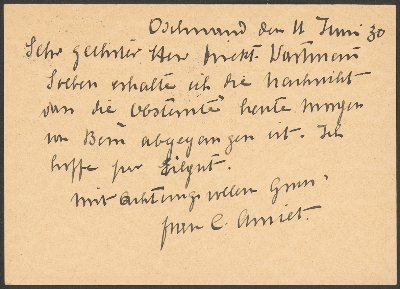 Oschwand den 11 Juni 30
Sehr geehrter Herr Direkt. Wartmann
Soeben erhalte ich die Nachricht
dass die "Obsternte" heute Morgen
von Bern abgegangen ist. Ich
hoffe per Eilgut.
Mit achtungsvollem Gruss
Frau C. Amiet.